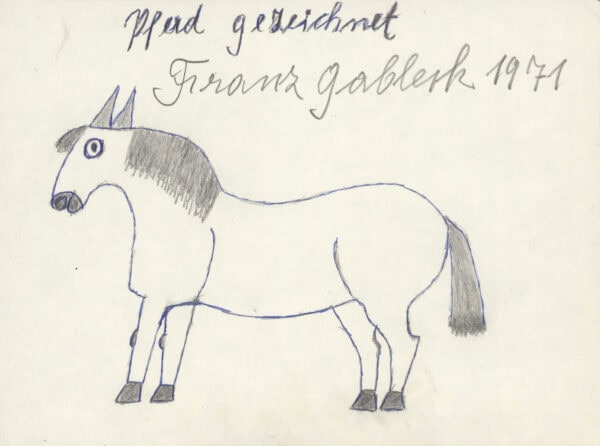 Pferd gezeichnet
Franz Gableck 1971